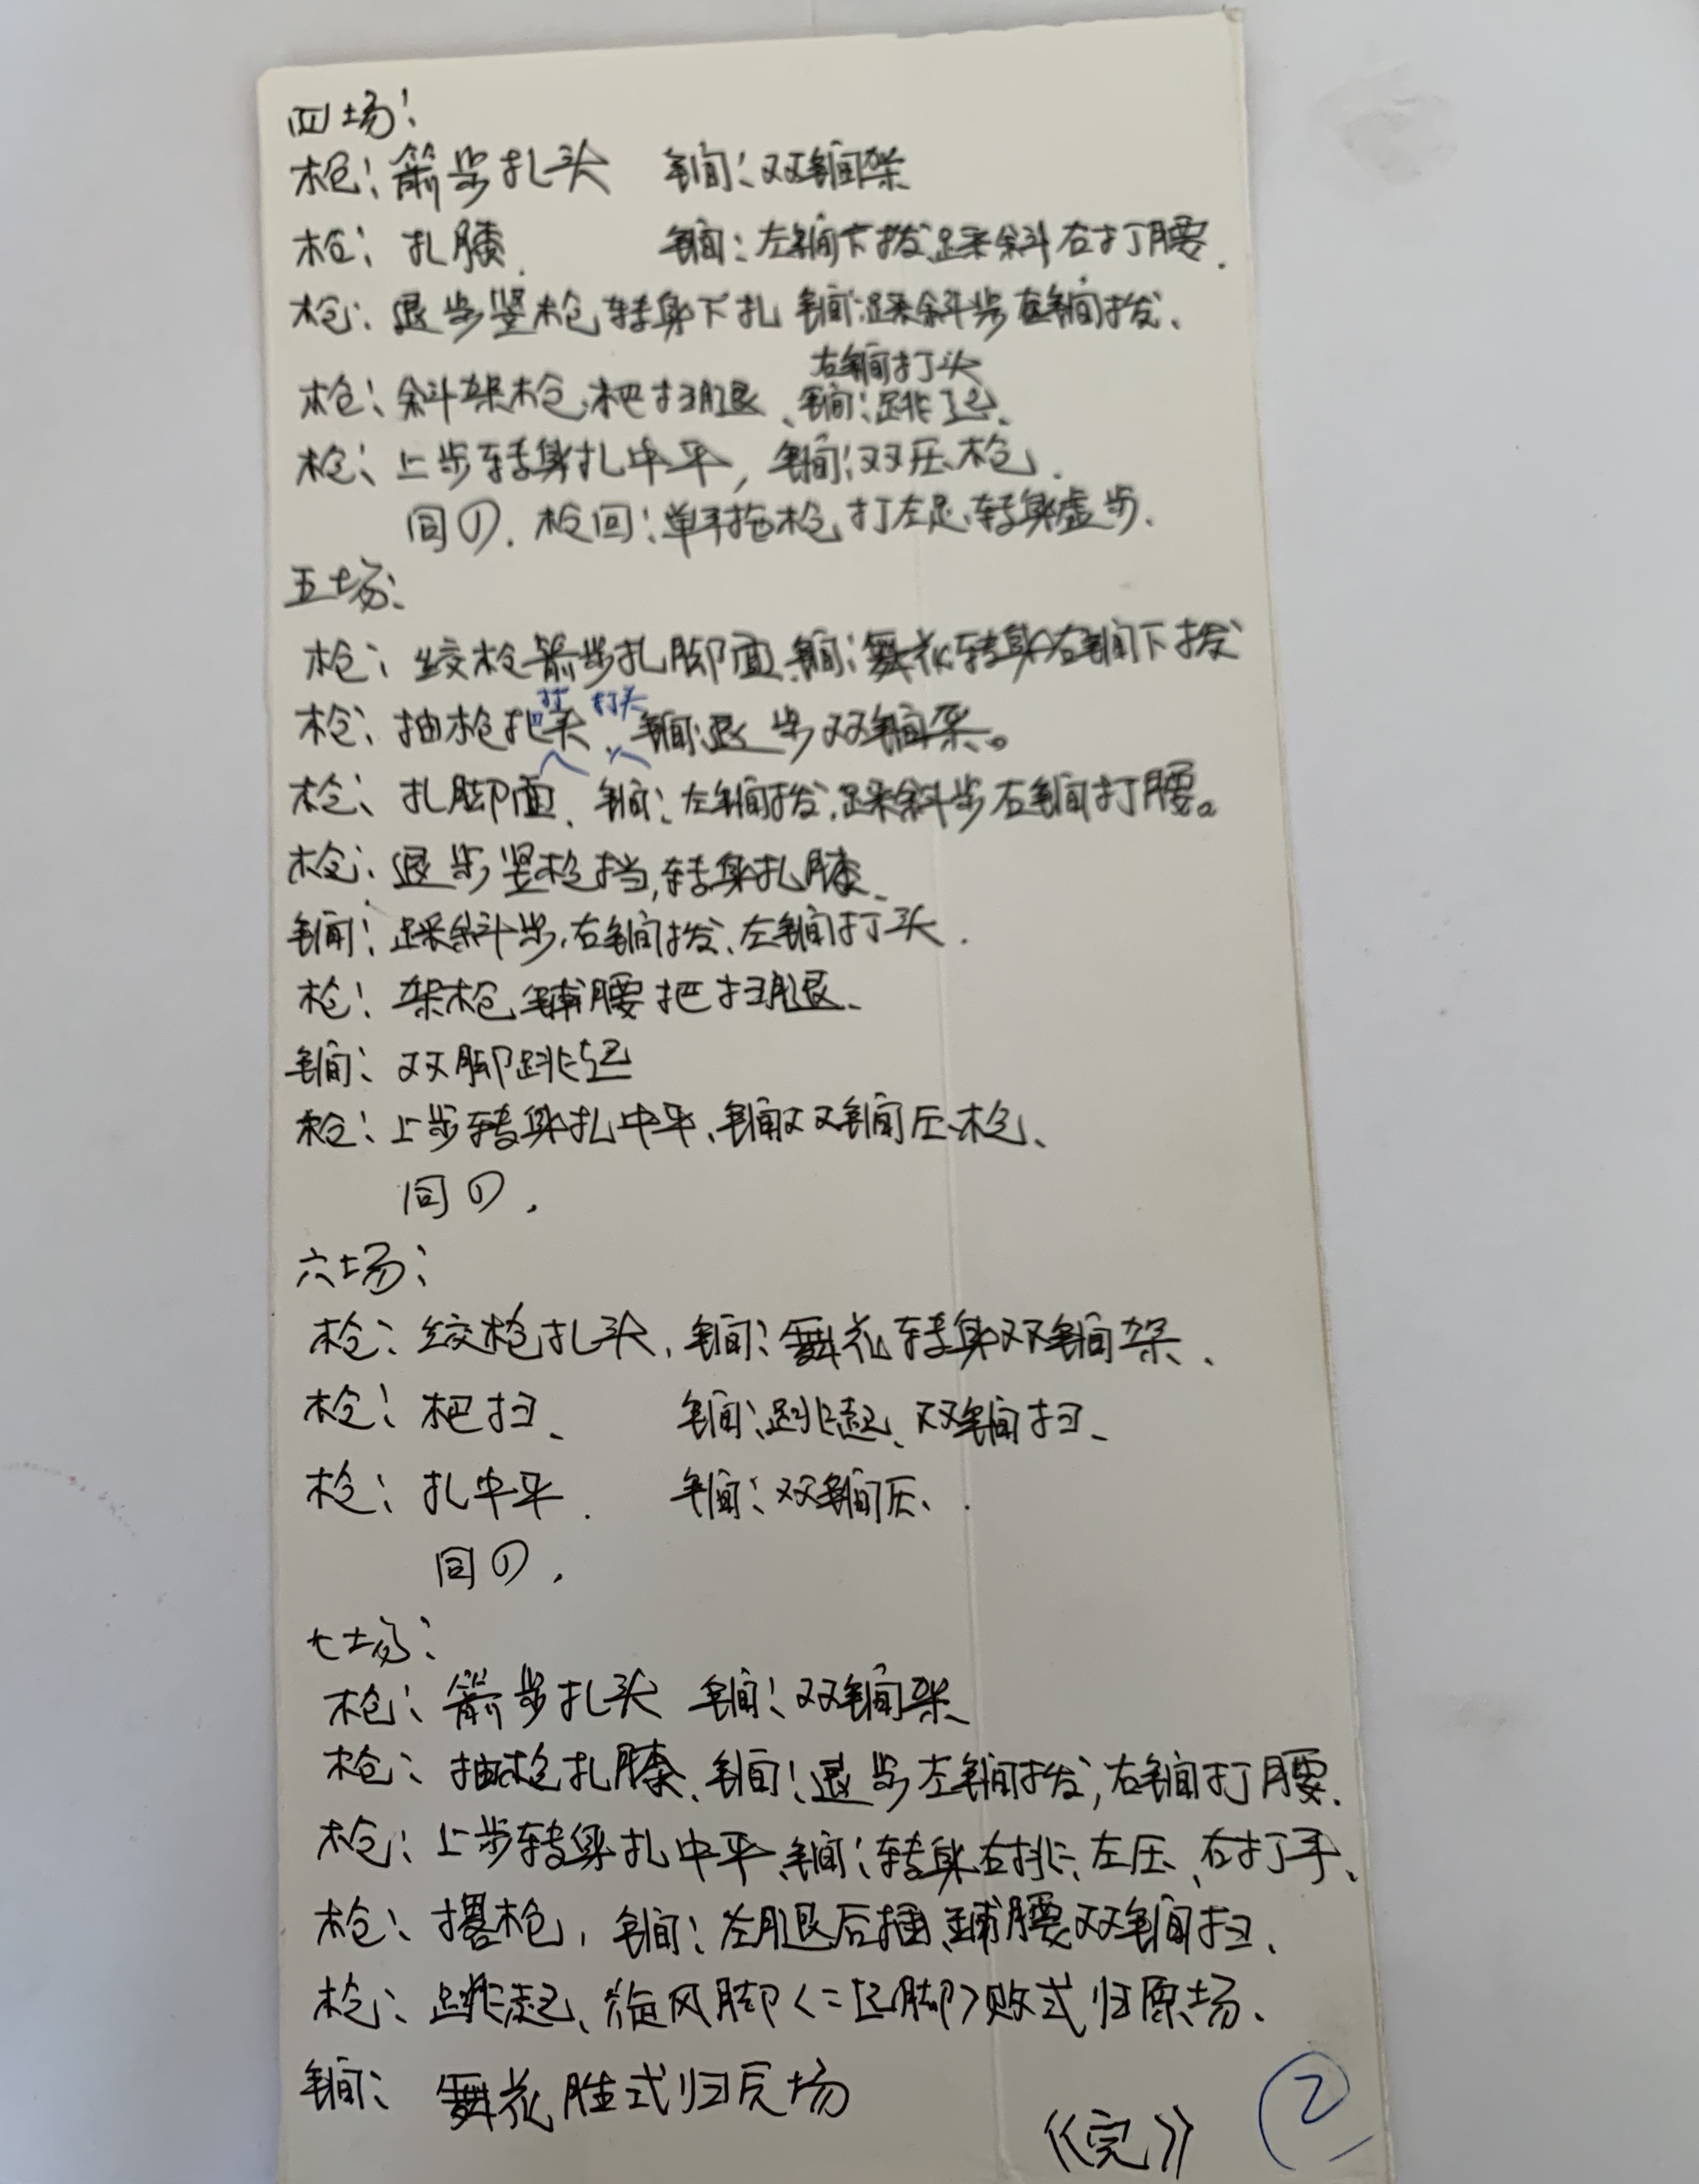 四场：
枪：箭步扎头 锏：双锏架
枪：扎膝. 锏：左锏下拨踩斜右打腰.
枪：退步竖枪转身下扎 锏：踩斜步左锏拨、
右锏打头
枪：斜架枪把扫腿、锏：跳起、
枪：上步转身扎中平，锏：双压枪.
同①. 枪回：单手拖枪打左足转身虚步.
五场：
枪：绞枪箭步扎脚面、锏：舞花转身右锏下拨
打 打头
枪：抽枪扎头、锏：退步双锏架。
枪：扎脚面、锏：左锏拨，踩斜步右锏打腰。
枪：退步竖枪挡，转身扎膝、
锏：踩斜步，右锏拨、左锏打头.
枪：架枪 辅腰把扫腿、
锏：双脚跳起
枪：上步转身扎中平、锏双双锏压枪、
同①.
六场：
枪：绞枪扎头，锏：舞花转身双锏架、
枪：把扫、 锏：跳起、双锏扫、
枪：扎中平. 锏：双锏压、.
同①.
七场：
枪：箭步扎头 锏：双锏架
枪：抽枪扎膝、锏：退步左锏拨，右锏打腰.
枪：上步转身扎中平、锏：转身右挑、左压、右打手、
枪：撂枪，锏：左腿后插、辅腰双锏扫、
枪：跳起、旋风脚〈二起脚〉败式归原场、
锏：舞花胜式归原场
《完》 ②